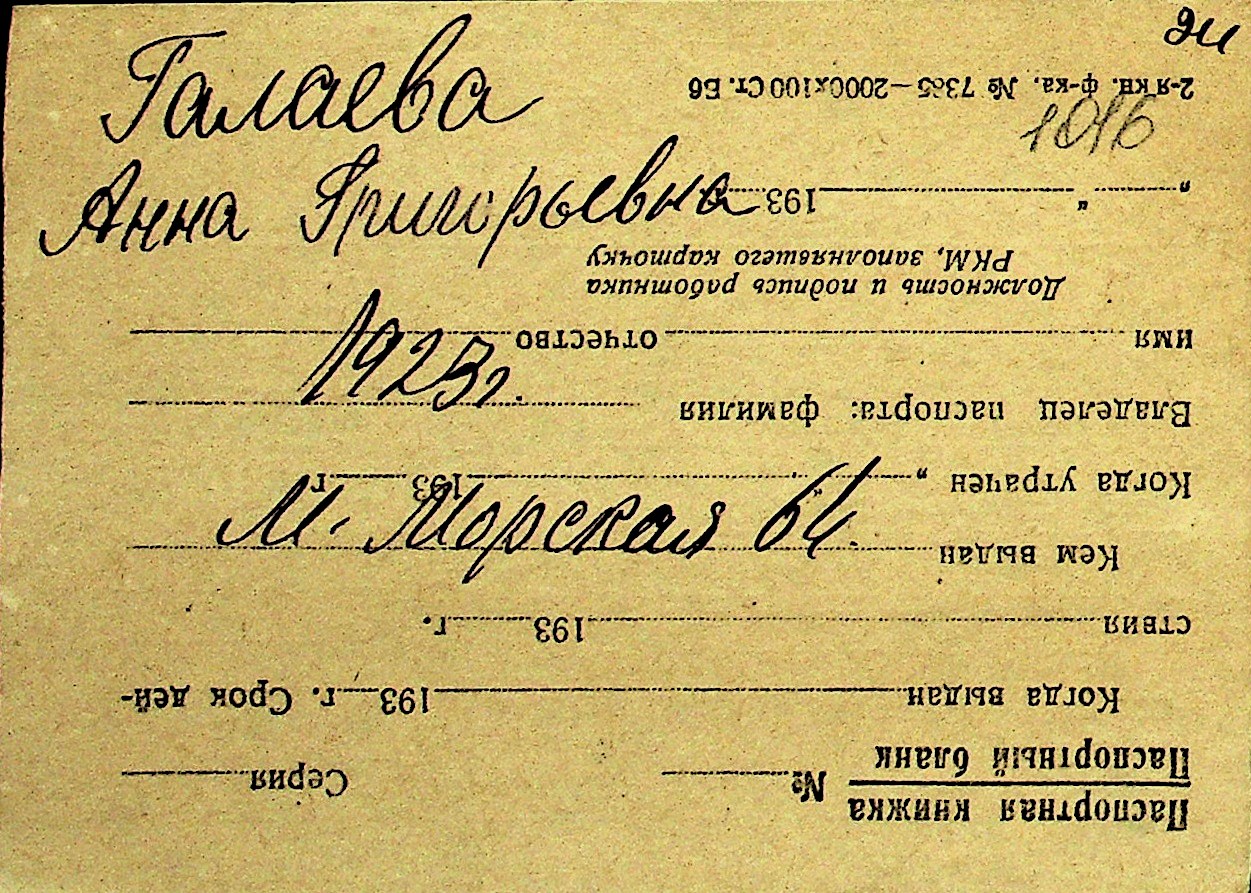 эи
Галаева
1016
Анна Григорьевна
1923г.
М. Морская 64.
Паспортная книжка
Паспортный бланк № Серия
Когда выдан 193 г. Срок дей-
ствия 193 г.
Кем выдан
Когда утрачен „ “ 193 г
Владелец паспорта: фамилия
имя отчество
Должность и подпись работника
РКМ, заполнявшего карточку
„ “ 193
2-я кн. ф-ка. № 7385—2000х100 Ст. Б6